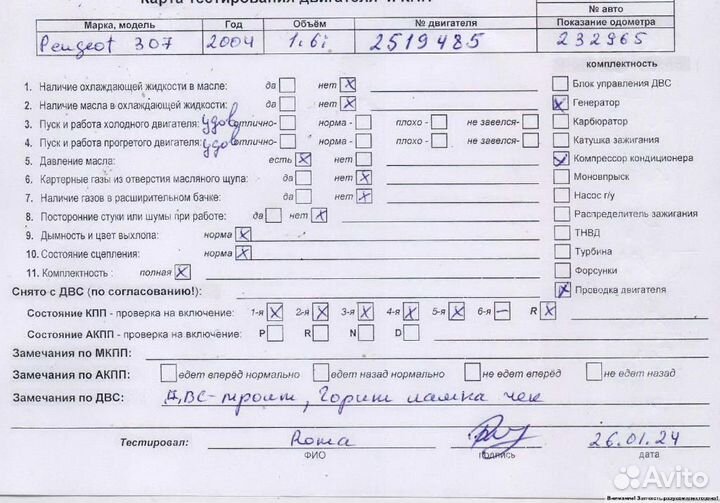 Карта тестирования двигателя и КПП
№ авто
Марка, модель Год Объём № двигателя Показание одометра
Peugeot 307 2004 1.6i 2519485 232965
комплектность
1. Наличие охлаждающей жидкости в масле: да нет X Блок управления ДВС
2. Наличие масла в охлаждающей жидкости: да нет X X Генератор
3. Пуск и работа холодного двигателя: удов отлично- норма - плохо - не завелся- Карбюратор
4. Пуск и работа прогретого двигателя: удов отлично- норма - плохо - не завелся- Катушка зажигания
5. Давление масла: есть X нет Компрессор кондиционера
6. Картерные газы из отверстия масляного щупа: да нет X Моновпрыск
7. Наличие газов в расширительном бачке: да нет X Насос г/у
8. Посторонние стуки или шумы при работе: да нет X Распределитель зажигания
9. Дымность и цвет выхлопа: норма X ТНВД
10. Состояние сцепления: норма X Турбина
11. Комплектность : полная X Форсунки
Снято с ДВС (по согласованию!): X Проводка двигателя
Состояние КПП - проверка на включение: 1-я X 2-я X 3-я X 4-я X 5-я X 6-я — R X
Состояние АКПП - проверка на включение: P R N D
Замечания по МКПП:
Замечания по АКПП: едет вперёд нормально едет назад нормально не едет вперёд не едет назад
Замечания по ДВС: ДВС-троит, Горит лампа чек
Тестировал: Roma 26.01.24
ФИО подпись дата
Avito